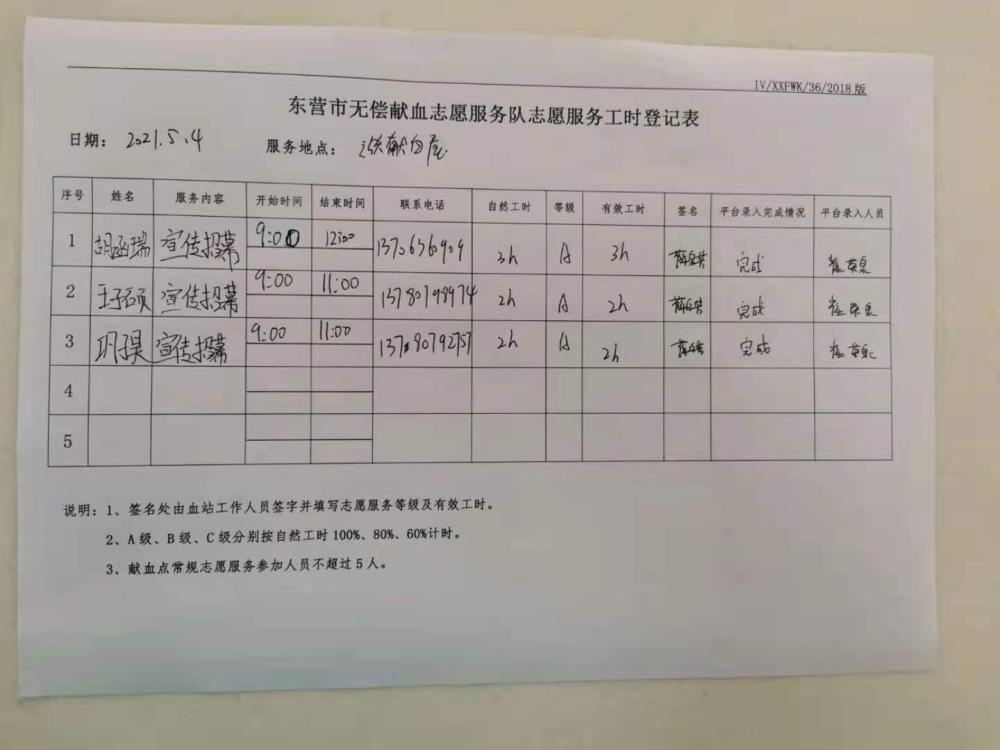 IV/XXFWK/36/2018 版
东营市无偿献血志愿服务队志愿服务工时登记表
日期: 2021.5.4 服务地点: 献血屋
序号 姓名 服务内容 开始时间 结束时间 联系电话 自然工时 等级 有效工时 签名 平台录入完成情况 平台录入人员
1 胡函瑞 宣传招募 9:00 12:00 1370636909 3h A 3h 完成
2 王子硕 宣传招募 9:00 11:00 13780798974 2h A 2h 完成
3 巩昊 宣传招募 9:00 11:00 13780792757 2h A 2h 完成
4
5
说明: 1、签名处由血站工作人员签字并填写志愿服务等级及有效工时。
2、A 级、B 级、C 级分别按自然工时 100%、80%、60%计时。
3、献血点常规志愿服务参加人员不超过 5 人。